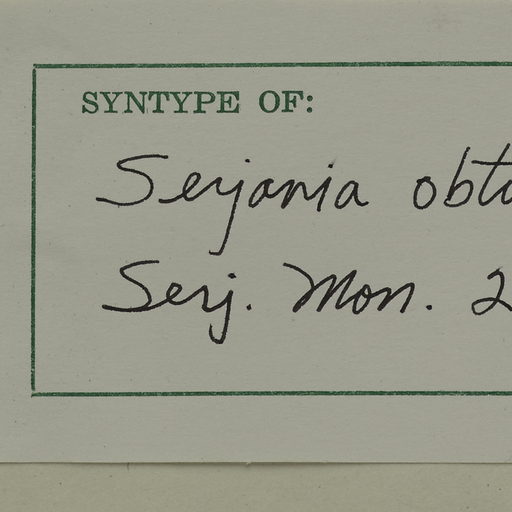 SYNTYPE OF:
Serjania obtu
Serj. Mon. 2